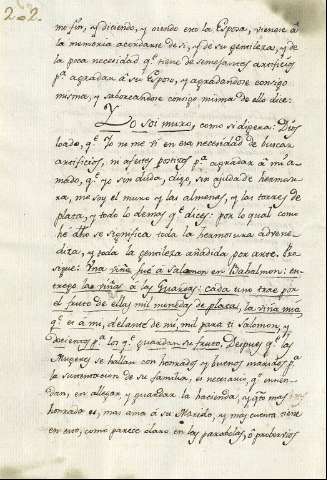 202.
mo fin, y diciendo, y oiendo esto la Esposa, vienese á
la memoria acordarse de sí, y de su gentileza, y de
la poca necesidad qe. tiene de semejantes artificios
pa. agradar á su Esposo, y agradandose consigo
misma, y saboreandose consigo misma de ello dice:
Yo soi muro, como si dixera: Dios
loado, qe. Yo no me ví en esa necesidad de buscar
artificios, ni afeites postizos pa. agradar á mi a-
mado, qe. yo sin duda, digo, sin ayuda de hermosu-
ra, me soy el muro y las almenas, y las torres de
plata, y todo lo demas qe. dices: por lo qual como
he dho se significa toda la hermosura advene-
diza, y toda la gentileza añadida por arte. Pro-
sigue: Una viña fué á Salamon en Bahalmon: en-
trego las viñas á las Guardas: cada uno trae por
el fruto de ellas mil monedas de plata, la viña mia
qe. es á mi, delante de mi, mil para ti Salomon, y
docientos pa. los qe. guardan su fruto. Despues qe. las
Mugeres se hallan con honrados y buenos maridos pa.
la sustentacion de su familia, es necesario qe. entien-
dan, en allegar y guardar la hacienda, y qto. mas
honrada es, mas ama á su Marido, y mas cuenta tiene
en esto, como parece claro en las parabolas, ó proberbios